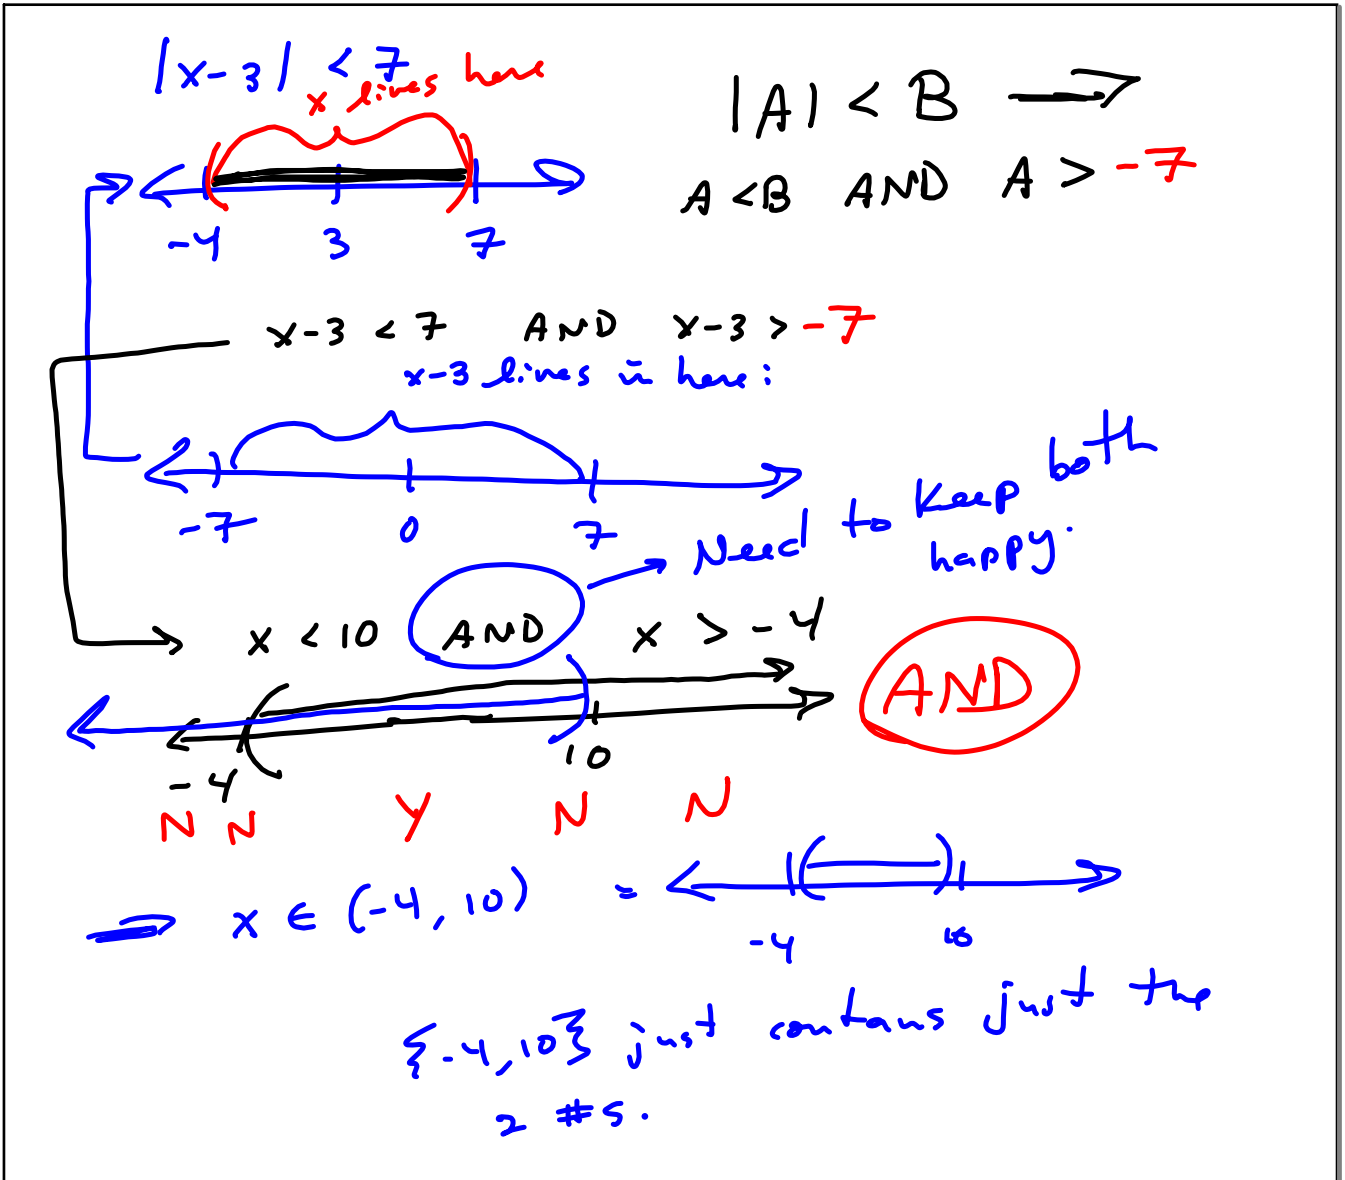 |x-3| < 7
x lives here
-4 3 7
|A| < B
A < B AND A > -7
x-3 < 7 AND x-3 > -7
x-3 lives in here:
-7 0 7
Need to keep both
happy.
x < 10 AND x > -4
AND
-4 10
N N Y N N
x ∈ (-4, 10) =
-4 10
{-4, 10} just contans just the
2 #s.